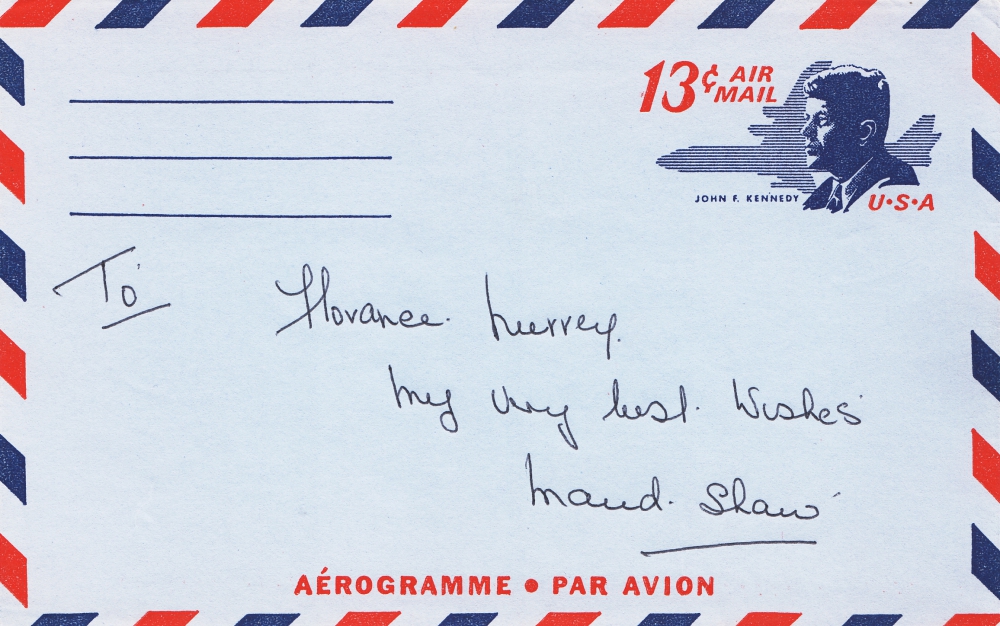 13¢ AIR MAIL
JOHN F. KENNEDY
U·S·A
To
Florance Murrey.
My very best. Wishes
Maud. Shaw
AÉROGRAMME • PAR AVION